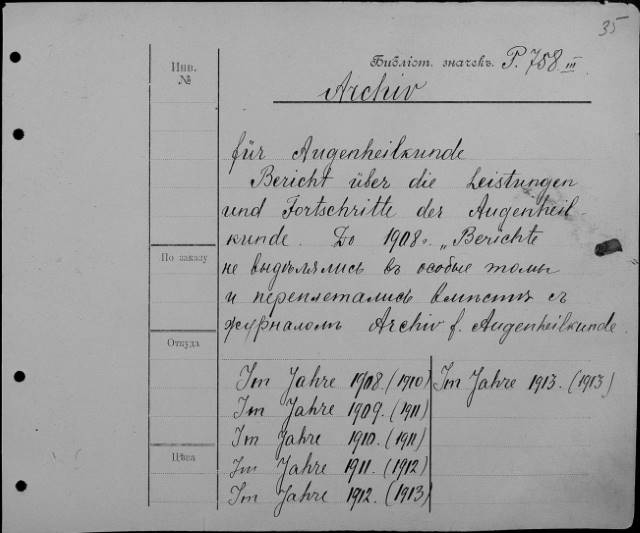 35
Библіот. значекъ. P. 758 III
Инв.
№
Archiv
für Augenheilkunde
Bericht über die Leistungen
und Fortschritte der Augenheil
kunde. До 1908г. „Berichte
не выдѣлялись въ особые томы
и переплетались вмѣстѣ съ
журналомъ Archiv f. Augenheilkunde.
По заказу
Откуда
Цѣна
Im Jahre 1908. (1910)
Im Jahre 1909. (1911)
Im Jahre 1910. (1911)
Im Jahre 1911. (1912)
Im Jahre 1912. (1913)
Im Jahre 1913. (1913)